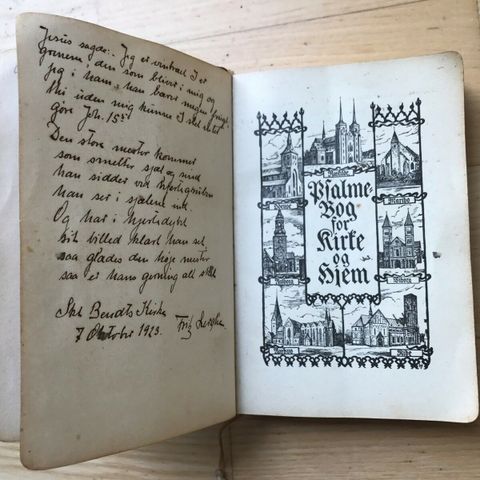 Jesus sagde: Jeg er vintræet I er
grenene, den som bliver i mig og
jeg i ham, han bærer megen frugt
thi uden mig kunne I slet intet
gøre Joh. 15⁵
Den store mester kommer
som smelter sjæl og sind
han sidder ved
han ser i sjælene ind.
Og har i hjertedybet
sit billed klart han set,
saa glædes den høje mester
saa er hans gerning alt sket
Skt Bendts Kirke
7 Oktober 1923.
Psalme-
Bog
for
Kirke
og
Hjem
Roskilde
Maribo
Aalborg
Viborg